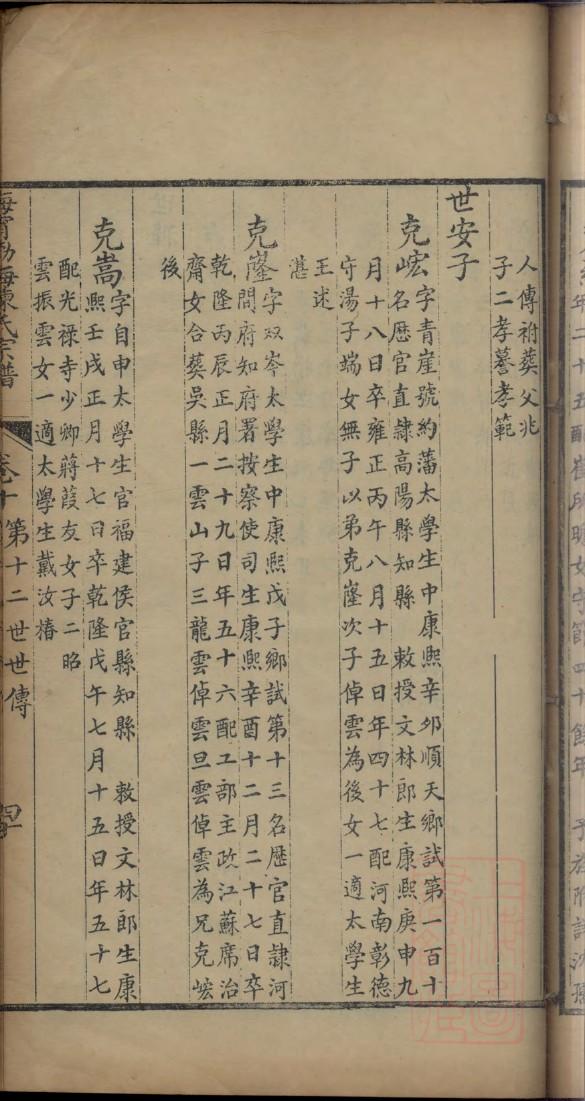 人傳祔葬父兆
子二孝謩孝範
世安子
克峵字青崖號約藩太學生中康熙辛夘順天鄉試第一百十
名歷官直隷高陽縣知縣 敕授文林郎生康熙庚申九
月十八日卒雍正丙午八月十五日年四十七配河南彰德
守湯子端女無子以弟克𡼏次子倬雲為後女一適太學生
王述
湛
克𡼏字双岑太學生中康熙戊子鄉試第十三名歷官直隷河
間府知府署按察使司生康熙辛酉十二月二十七日卒
乾隆丙辰正月二十九日年五十六配工部主政江蘇席治
齊女合葵吳縣一雲山子三龍雲倬雲旦雲倬雲為兄克峵
後
克嵩字自申太學生官福建侯官縣知縣 敕授文林郎生康
熙壬戌正月十七日卒乾隆戊午七月十五日年五十七
配光禄寺少卿蔣葭友女子二昭
雲振雲女一適太學生戴汝椿
海寧渤海陳氏宗譜 卷十 第十二世世傳